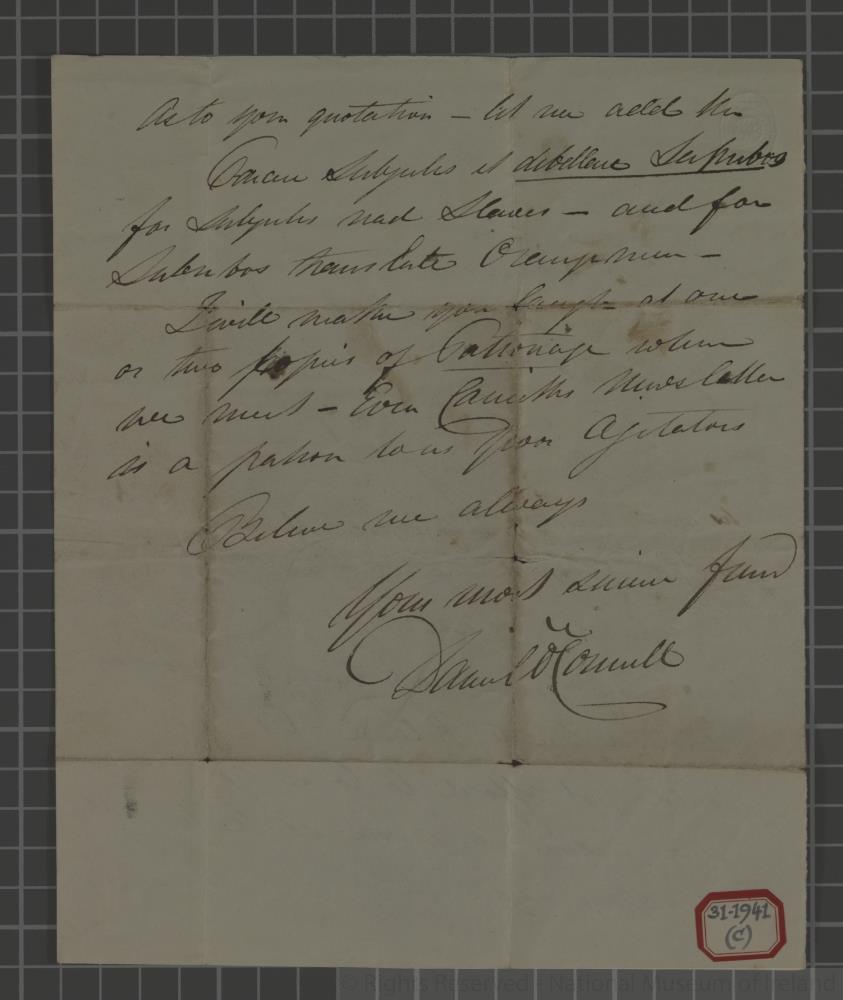 As to your quotation – let me add the
Parcere Subjectis et debellare Superbos
for Subjectis read Slaves – and for
Superbos translate Orangemen –
I will make you laugh at one
or two of Patronage when
we meet – Even Newsletter
is a patron to us poor Agitators
Believe me always
Your most sincere friend
Daniel O'Connell
31-1941
(C)
© Rights Reserved - National Museum of Ireland